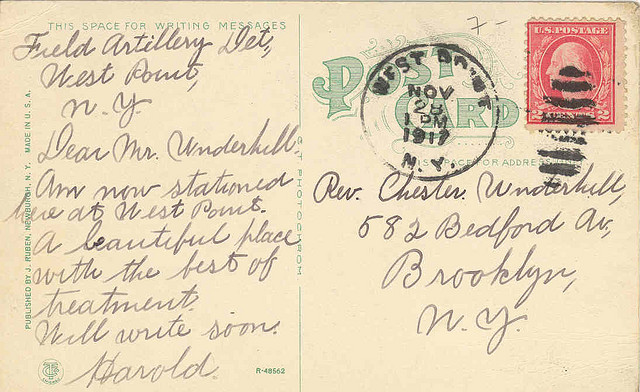 THIS SPACE FOR WRITING MESSAGES
Field Artillery Det,
West Point,
N.Y.
Dear Mr. Underhill
Am now stationed
at West Point.
A beautiful place
with the best of
treatment.
Will write soon.
Harold.
PUBLISHED BY J. RUBEN, NEWBURGH, N. Y. MADE IN U. S. A.
R-48562
PHOTOCHROM
POST CARD
THIS SPACE FOR ADDRESS
7-
WEST POINT
NOV
28
1 PM
1917
N.Y.
U.S. POSTAGE
2 2
Rev. Chester Underhill,
582 Bedford Av,
Brooklyn,
N.Y.